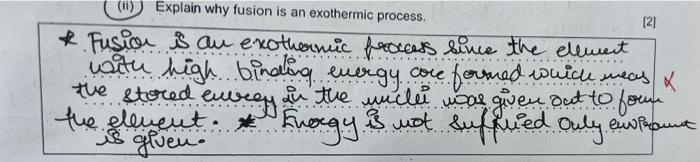 (ii) Explain why fusion is an exothermic process.
[2]
* Fusion is an exothermic process since the element
with high binding energy are formed which meas
the stored energy in the nuclei was given out to form
the element. * Energy is not supplied only
is given.